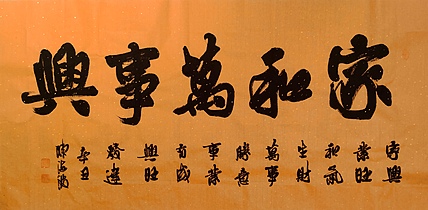 家和萬事興
家興
業旺
和氣
生財
萬事
勝意
事業
有成
興旺
發達
辛丑